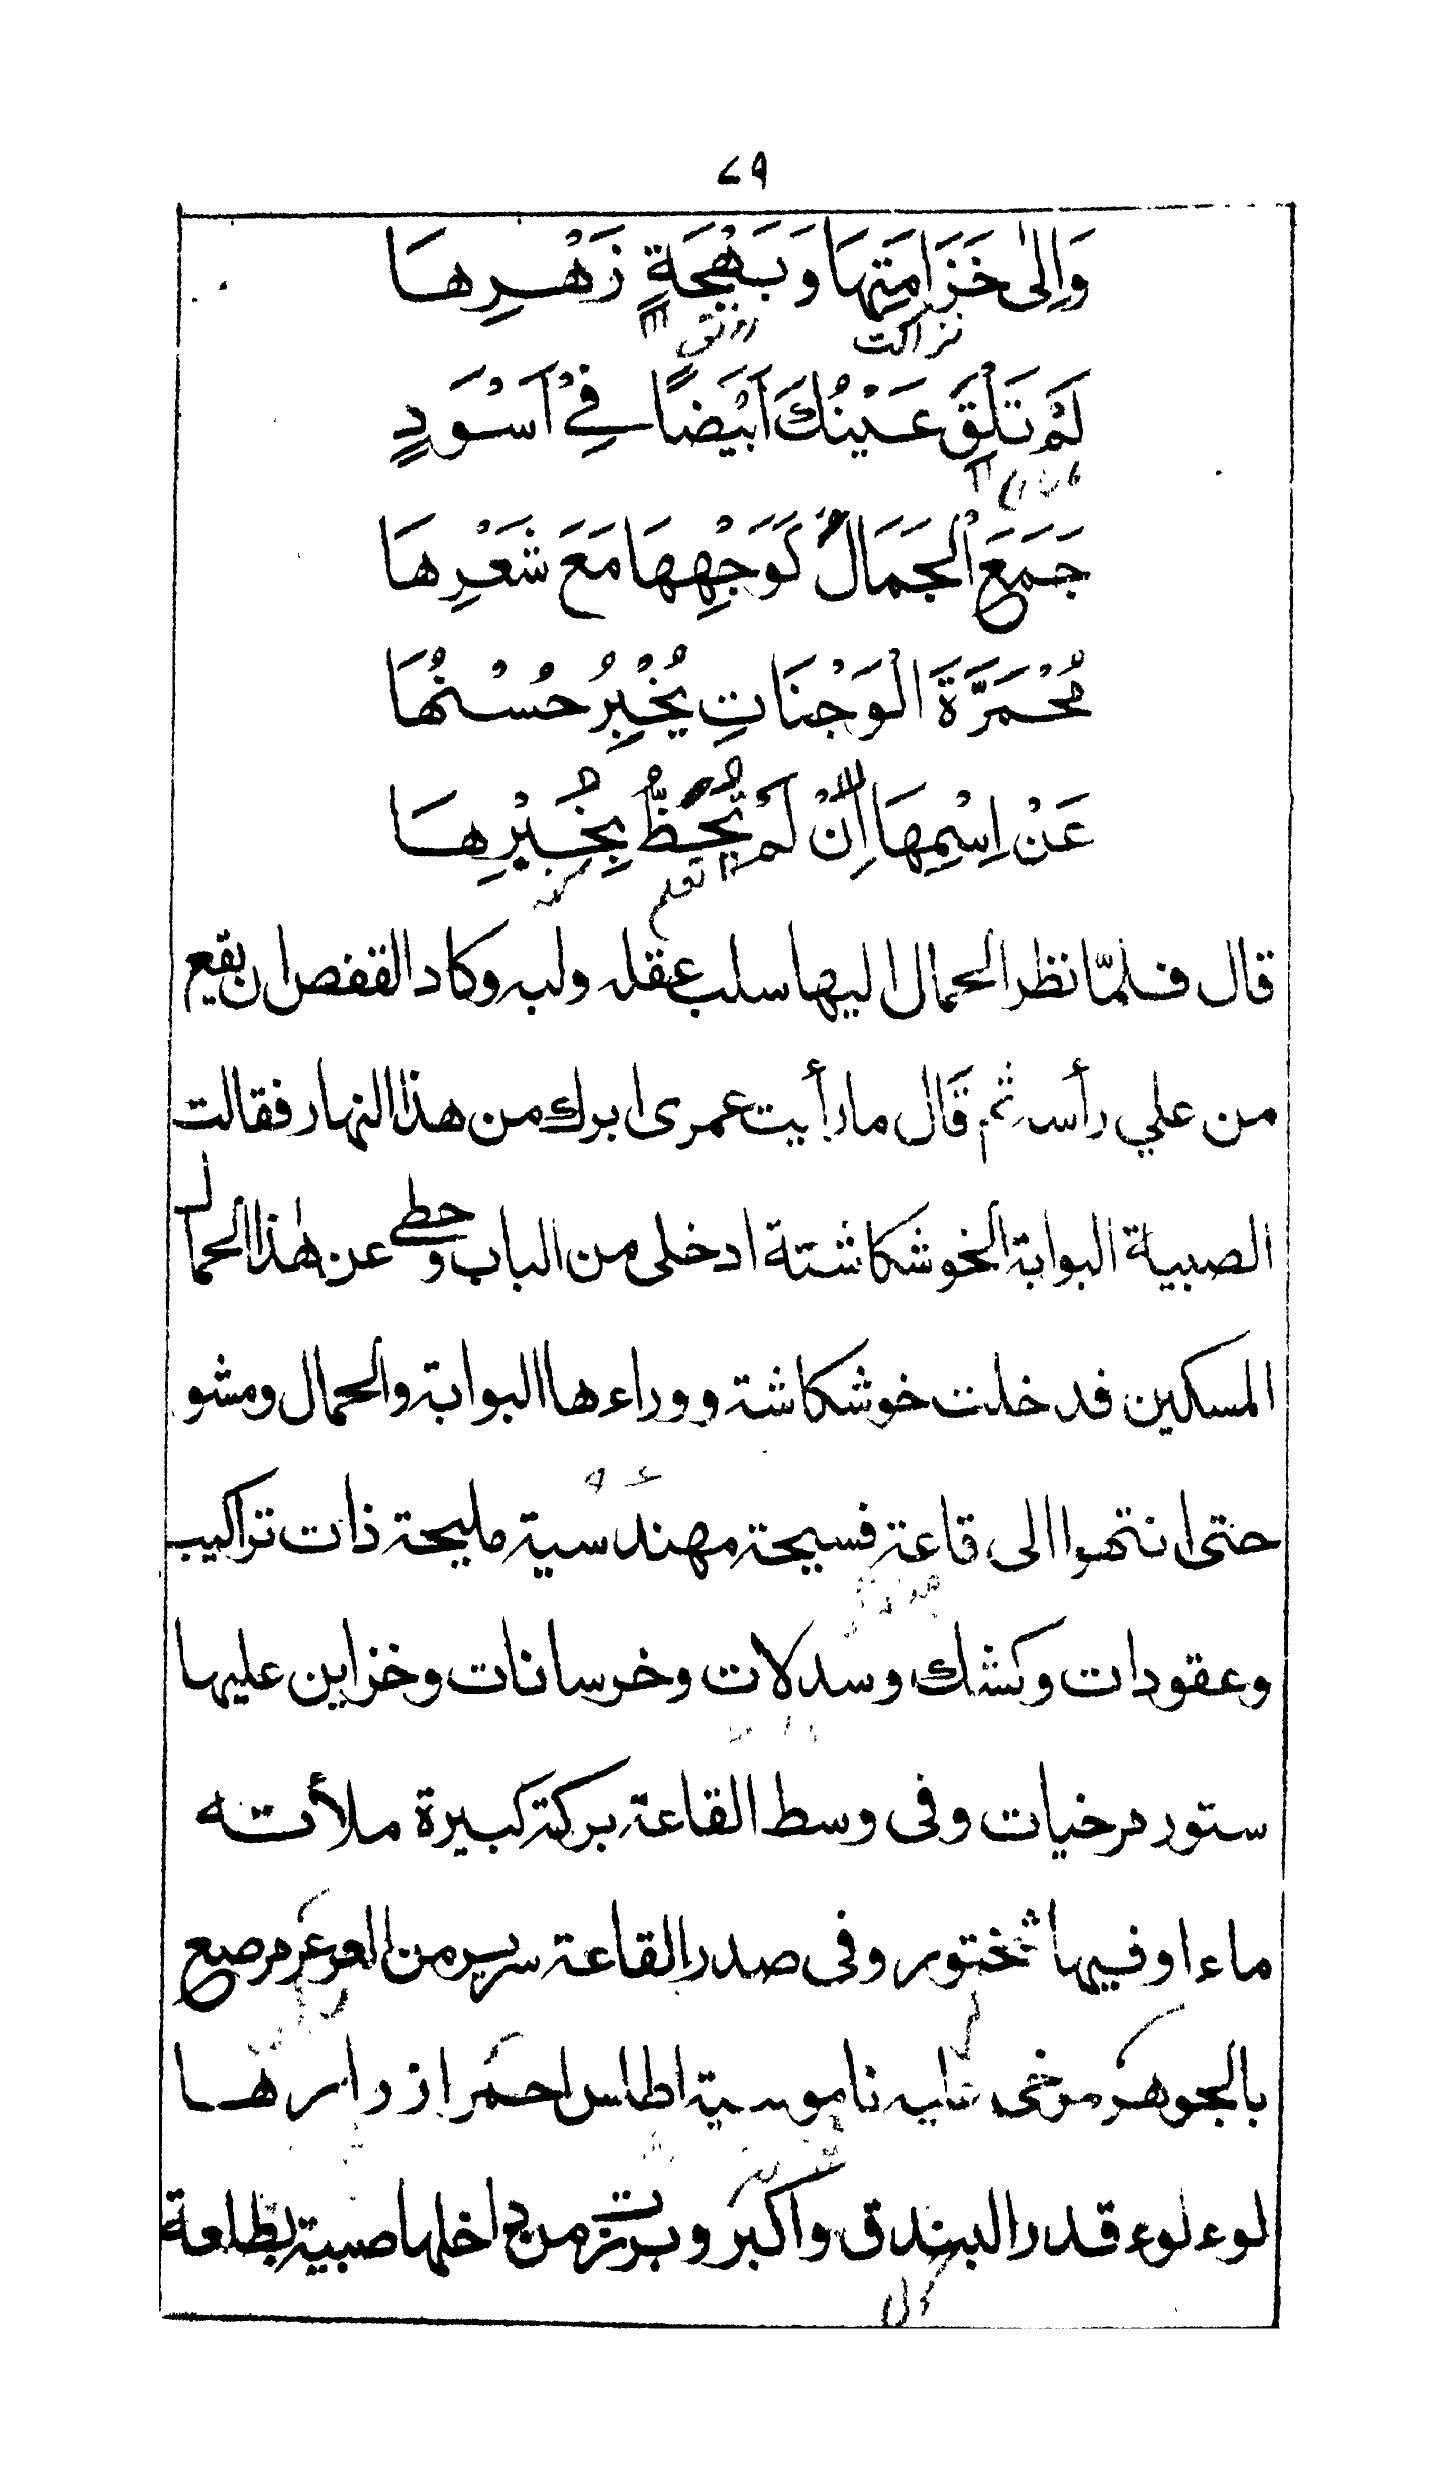 ٧٩
وَاِلىٰ خَزَامَتِهَا وَبَهْجَةِ زَهْرِهَا
نزاكت رونق
لَمْ تَلْقَ عَيْنُكَ اَبْيَضًا فِيْ اَسْوَدٍ
جَمَعَ اْلجَمَالُ كَوَجْهِهَا مَعَ شَعْرِهَا
مُحْمَرَّةَ الوَجْنَاتِ يُخْبِرُ حُسْنُهَا
عَنْ اِسْمِهَا اِنْ لَمْ تُحُظَّ بِخُبْرِهَا
تعلم
قال فلمّا نظر الحمال اليها سلب عقله ولبه وكاد القفص ان يقع
من علي رأسه ثم قَال ما رأيت عمرى ابرك من هذا النهار فقالت
الصبية البوابة الخوشكاشتة ادخلى من الباب وحطى عن هٰذا الحمال
المسكين فدخلت خوشكاشة ووراءها البوابة والحمال ومشو
حتى انتهوا الى قاعة فسيحة مهندسية مليحة ذات تراكيب
وعقودات وكشك وسدلات وخرسانات وخزاين عليها
ستور مرخيات وفى وسط القاعة بركة كبيرة ملأته
ماءا وفيها شختور وفى صدر القاعة سرير من العرعر مرصع
بالجوهر مرخى عليه ناموسية اطلس احمر ازرارها
لوءلوء قدر البندق واكبر وبرزت من داخلها صبية بطلعة